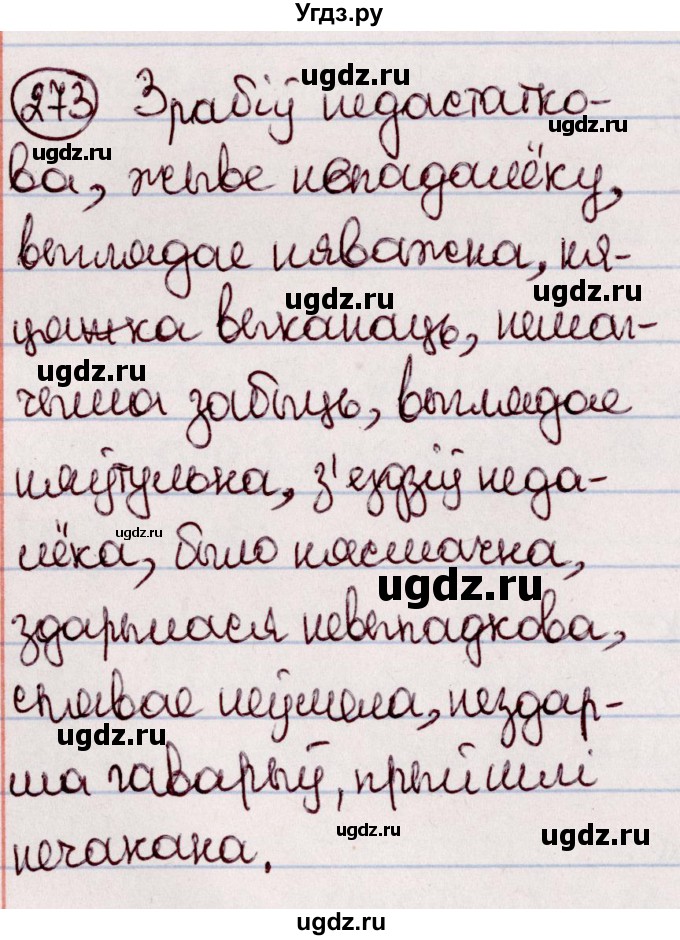 Угдз.ру
273 Зрабіў недастатко-
ва, жыве непадалёку,
выглядае няважна, ня-
цяжка выканаць, немаг-
чыма забыць, выглядае
няўтульна, з'ездзіў неда-
лёка, было нясмачна,
здарылася невыпадкова,
спявае няўмела, нездар-
ма гаварыў, прыйшлі
нечакана.
ugdz.ru
ugdz.ru
ugdz.ru
ugdz.ru
ugdz.ru
ugdz.ru
ugdz.ru
ugdz.ru
ugdz.ru
ugdz.ru
ugdz.ru
ugdz.ru